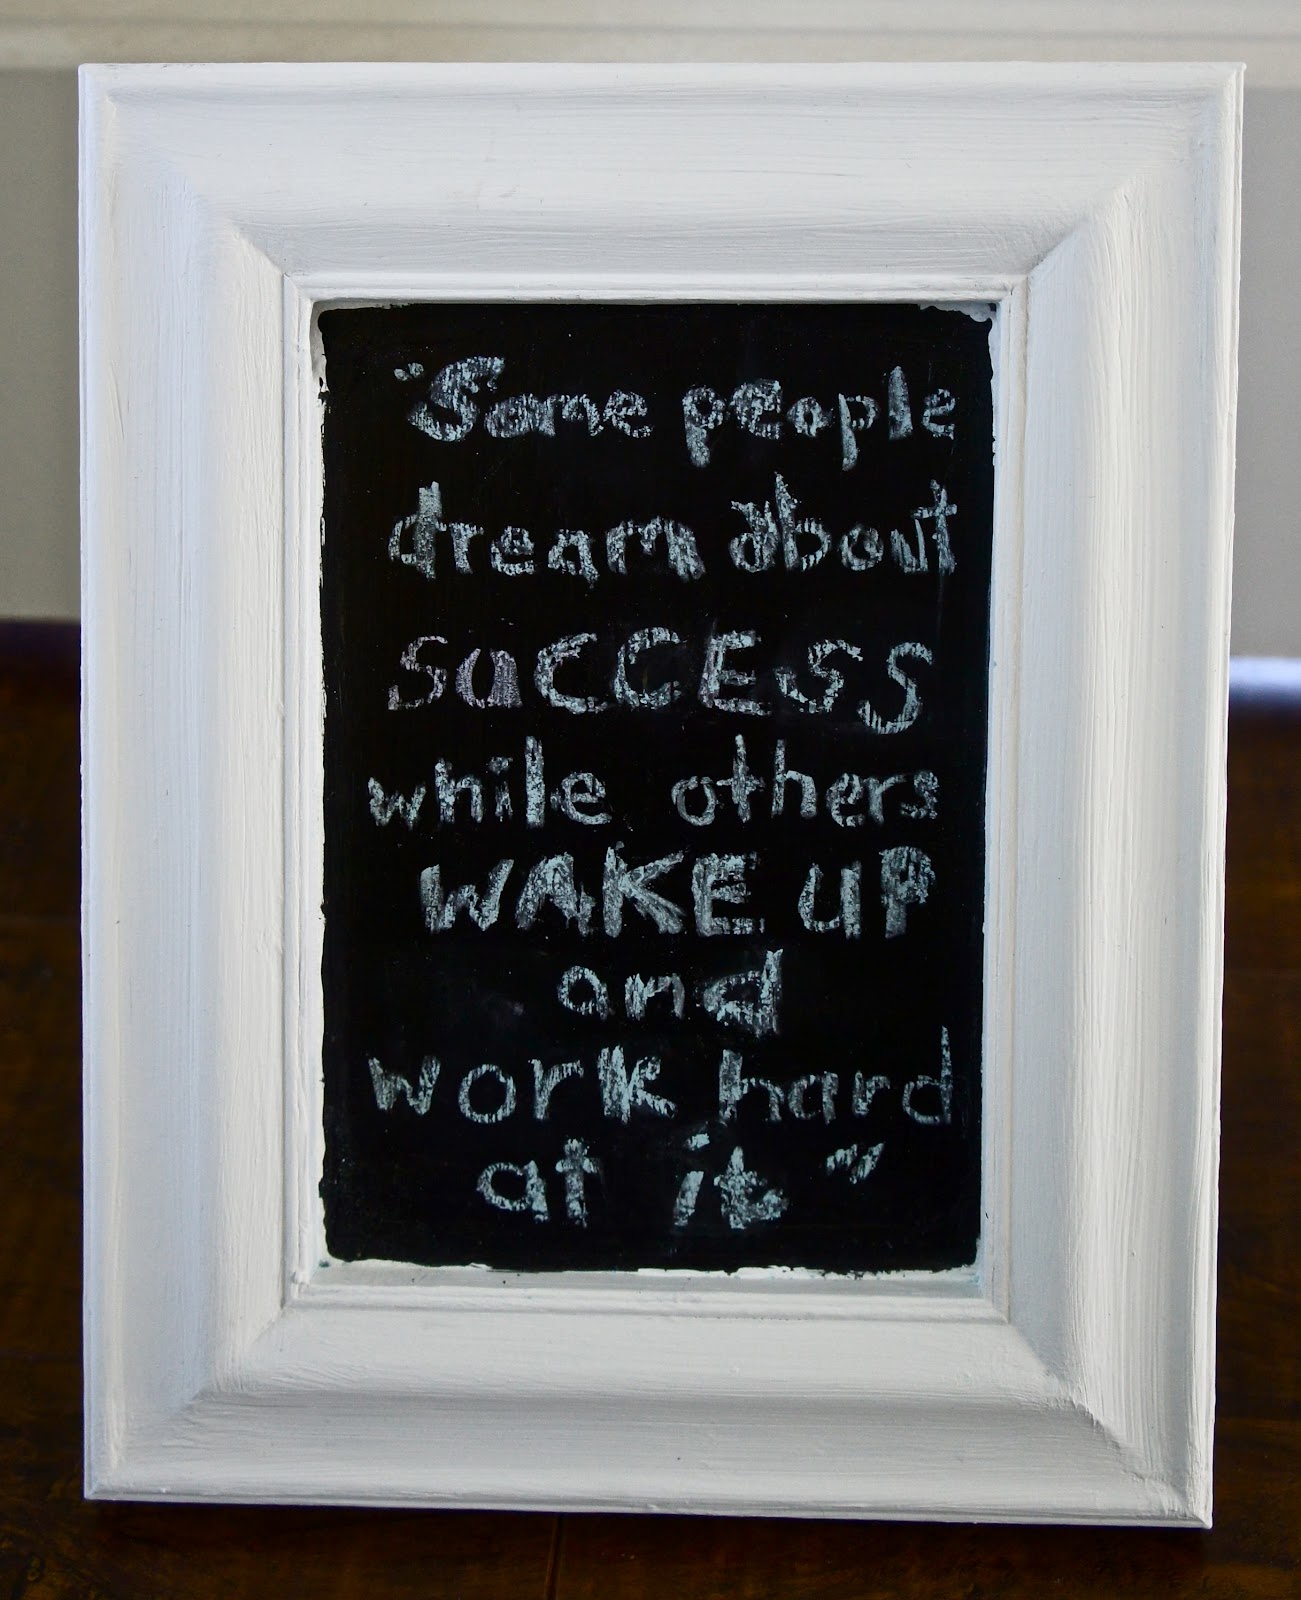 "Some people
dream about
SUCCESS
while others
WAKE UP
and
work hard
at it"